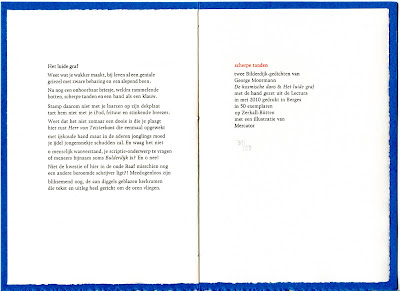 Het luide graf
Weet wat je wakker maakt, bij leven al een geniale
griezel met zware beharing en een slepend been.
Nu nog een onhoorbaar briesje, welden rammelende
botten, scherpe tanden en een hand als een klauw.
Stamp daarom niet met je laarzen op zijn dekplaat
tart hem niet met je iPod, frituur en stinkende broeces.
Weet dat het niet zomaar een dooie is die je plaagt
hier rust Heer van Teisterbant die eenmaal opgewekt
met ijskoude hand maar in de aderen jonglings moed
je ijdel jongenszakje schudden zal. En waag het niet
o menselijk wanverstand, je scriptie-onderwerp te vragen
of meneers bijnaam soms Bulderdijk is? En o nee!
Niet de kwestie of hier in de oude Raaf misschien nog
een andere beroemde schrijver ligt?! Meedogenloos zijn
bliksemend oog, de aan diggels geblazen kerkramen
die tekst en uitleg heel gericht om de oren vliegen.
scherpe tanden
twee Bilderdijk-gedichten van
George Moormann
De kosmische dans & Het luide graf
met de hand gezet uit de Lectura
in mei 2010 gedrukt in Bergen
in 50 exemplaren
op Zerkall-Bütten
met een illustratie van
Mercator